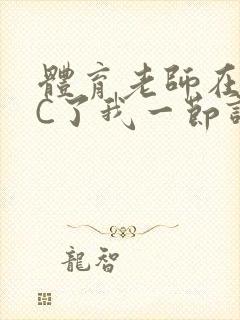 體育老師在
C了我一節
龍智